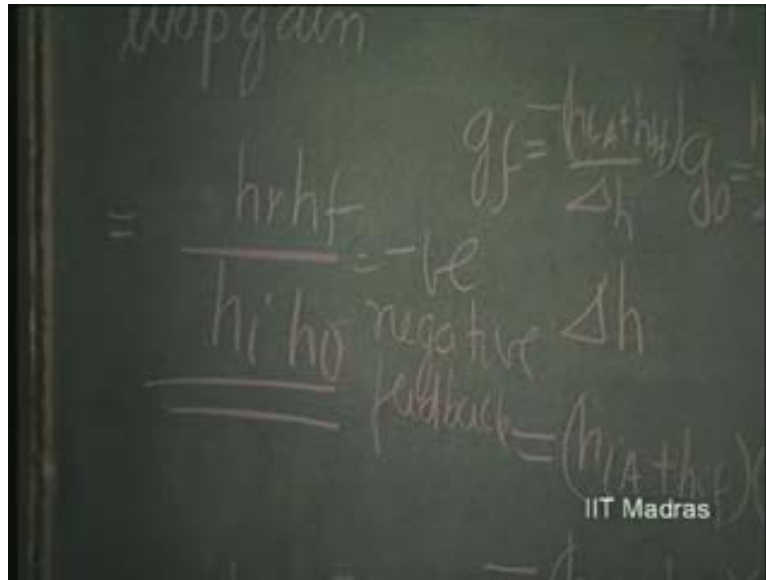 loop gain
= hr hf / hi ho = -ve
negative
feedback
gf = -(hiA + hif) / Δh
go =
Δh
= (hiA + hif)(
IIT Madras